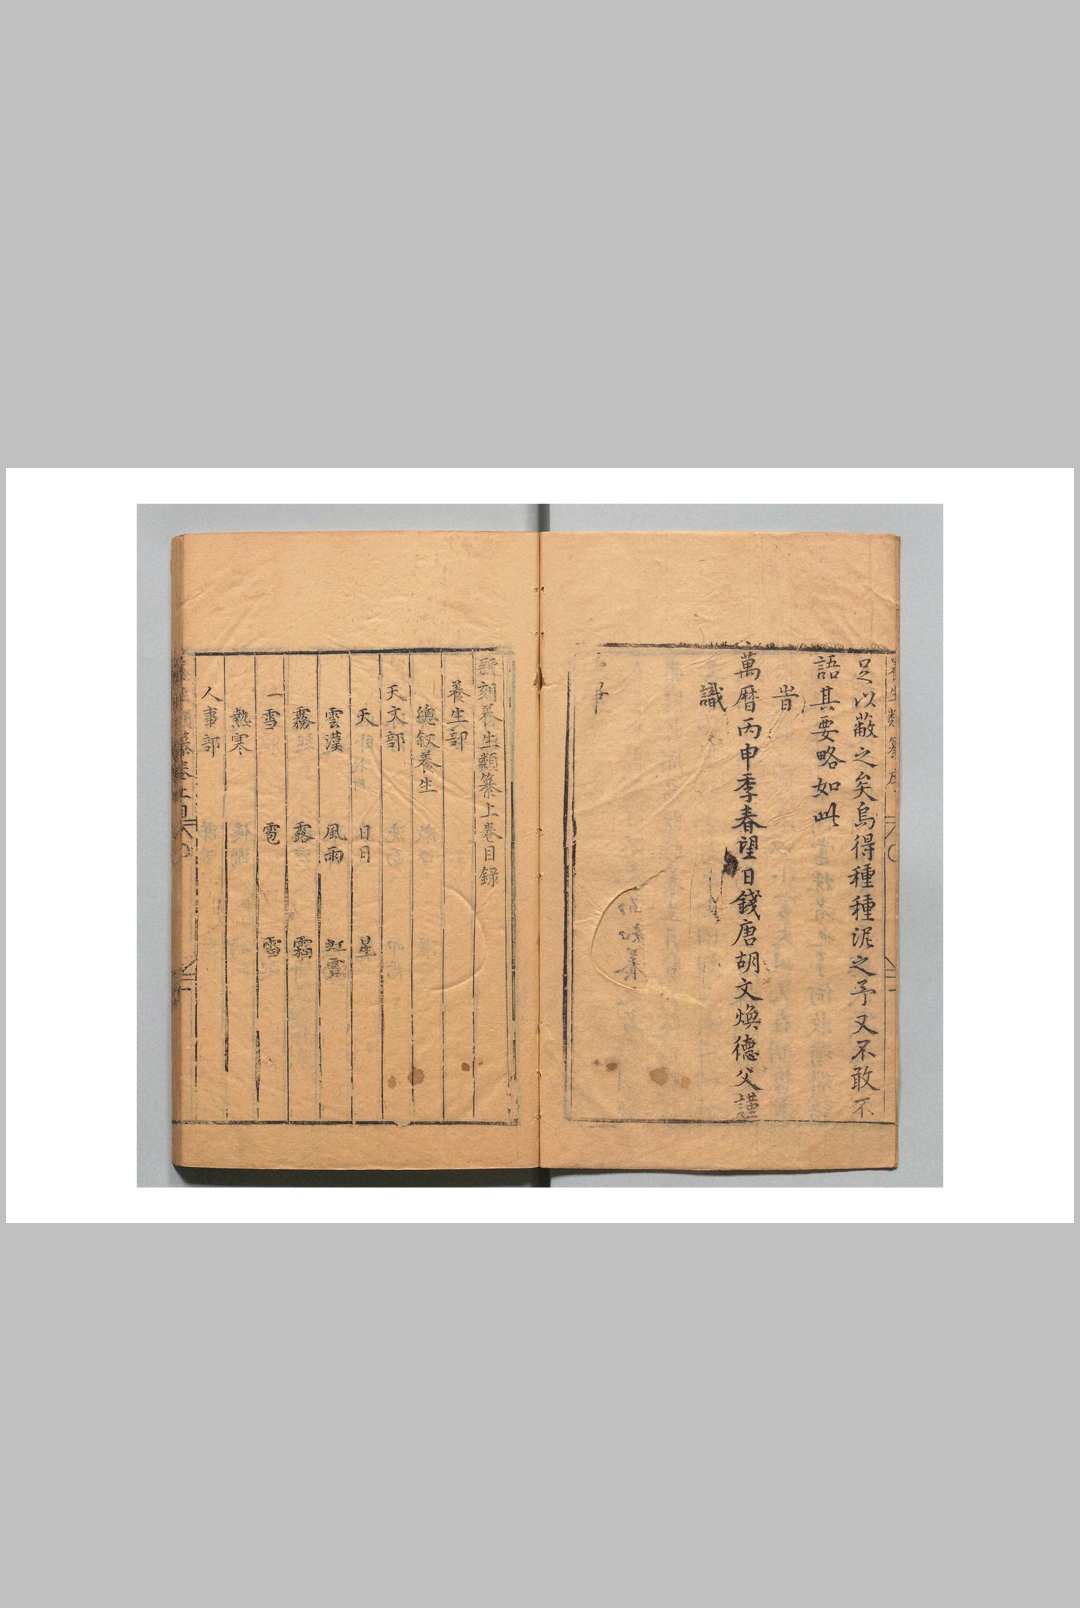 足以蔽之矣烏得種種泥之予又不敢不
語其要略如此
旹
萬曆丙申季春望日錢唐胡文煥德父謹
識
新刻養生類纂上卷目錄
養生部
總叙養生
天文部
天 日月 星
雲漢 風雨 虹霓
霧 露 霜
雪 雹 雷
熱寒
人事部